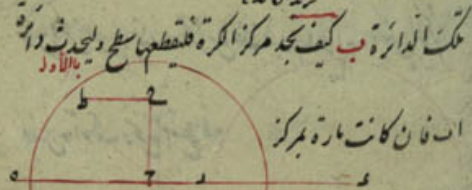 تلك الدائرة ب كيف نجد مركز الكرة فليقطعها سطح وليحدث دائرة
بالأول
اب فان كانت مارة بمركز
ط ح
ه ج د ء